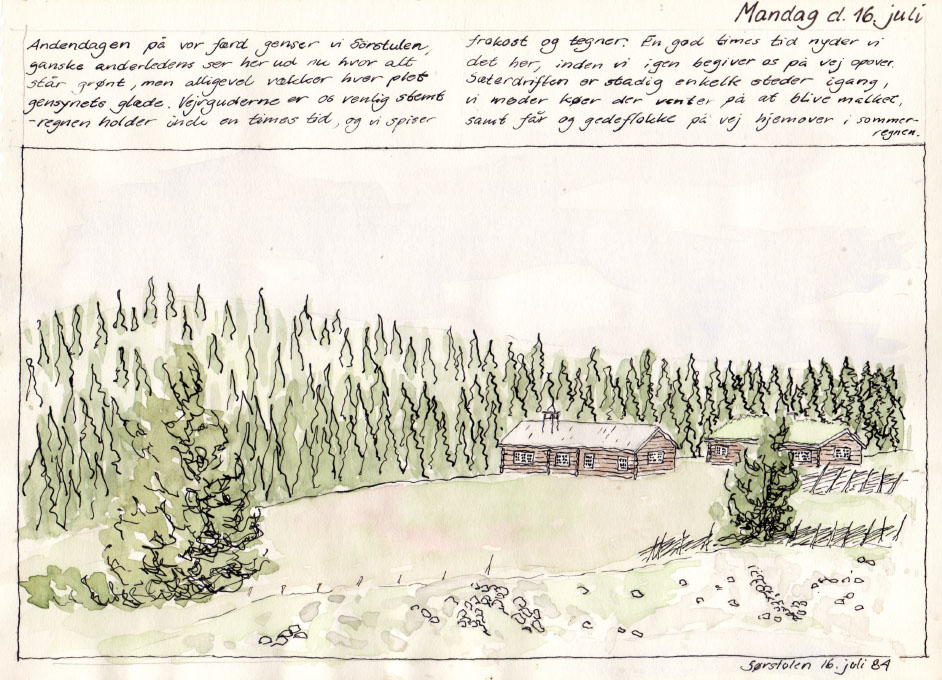 Mandag d. 16. juli
Andendagen på vor færd genser vi Sørstulen,
ganske anderledens ser her ud nu hvor alt
står grønt, men alligevel vækker hver plet
gensynets glæde. Vejrguderne er os venlig stemt
-regnen holder inde en times tid, og vi spiser
frokost og tegner. En god times tid nyder vi
det her, inden vi igen begiver os på vej opover.
Sæterdriften er stadig enkelte steder igang,
vi møder køer der venter på at blive malket,
samt får og gedeflokke på vej hjemover i sommer-
regnen.
Sørstulen 16. juli 84